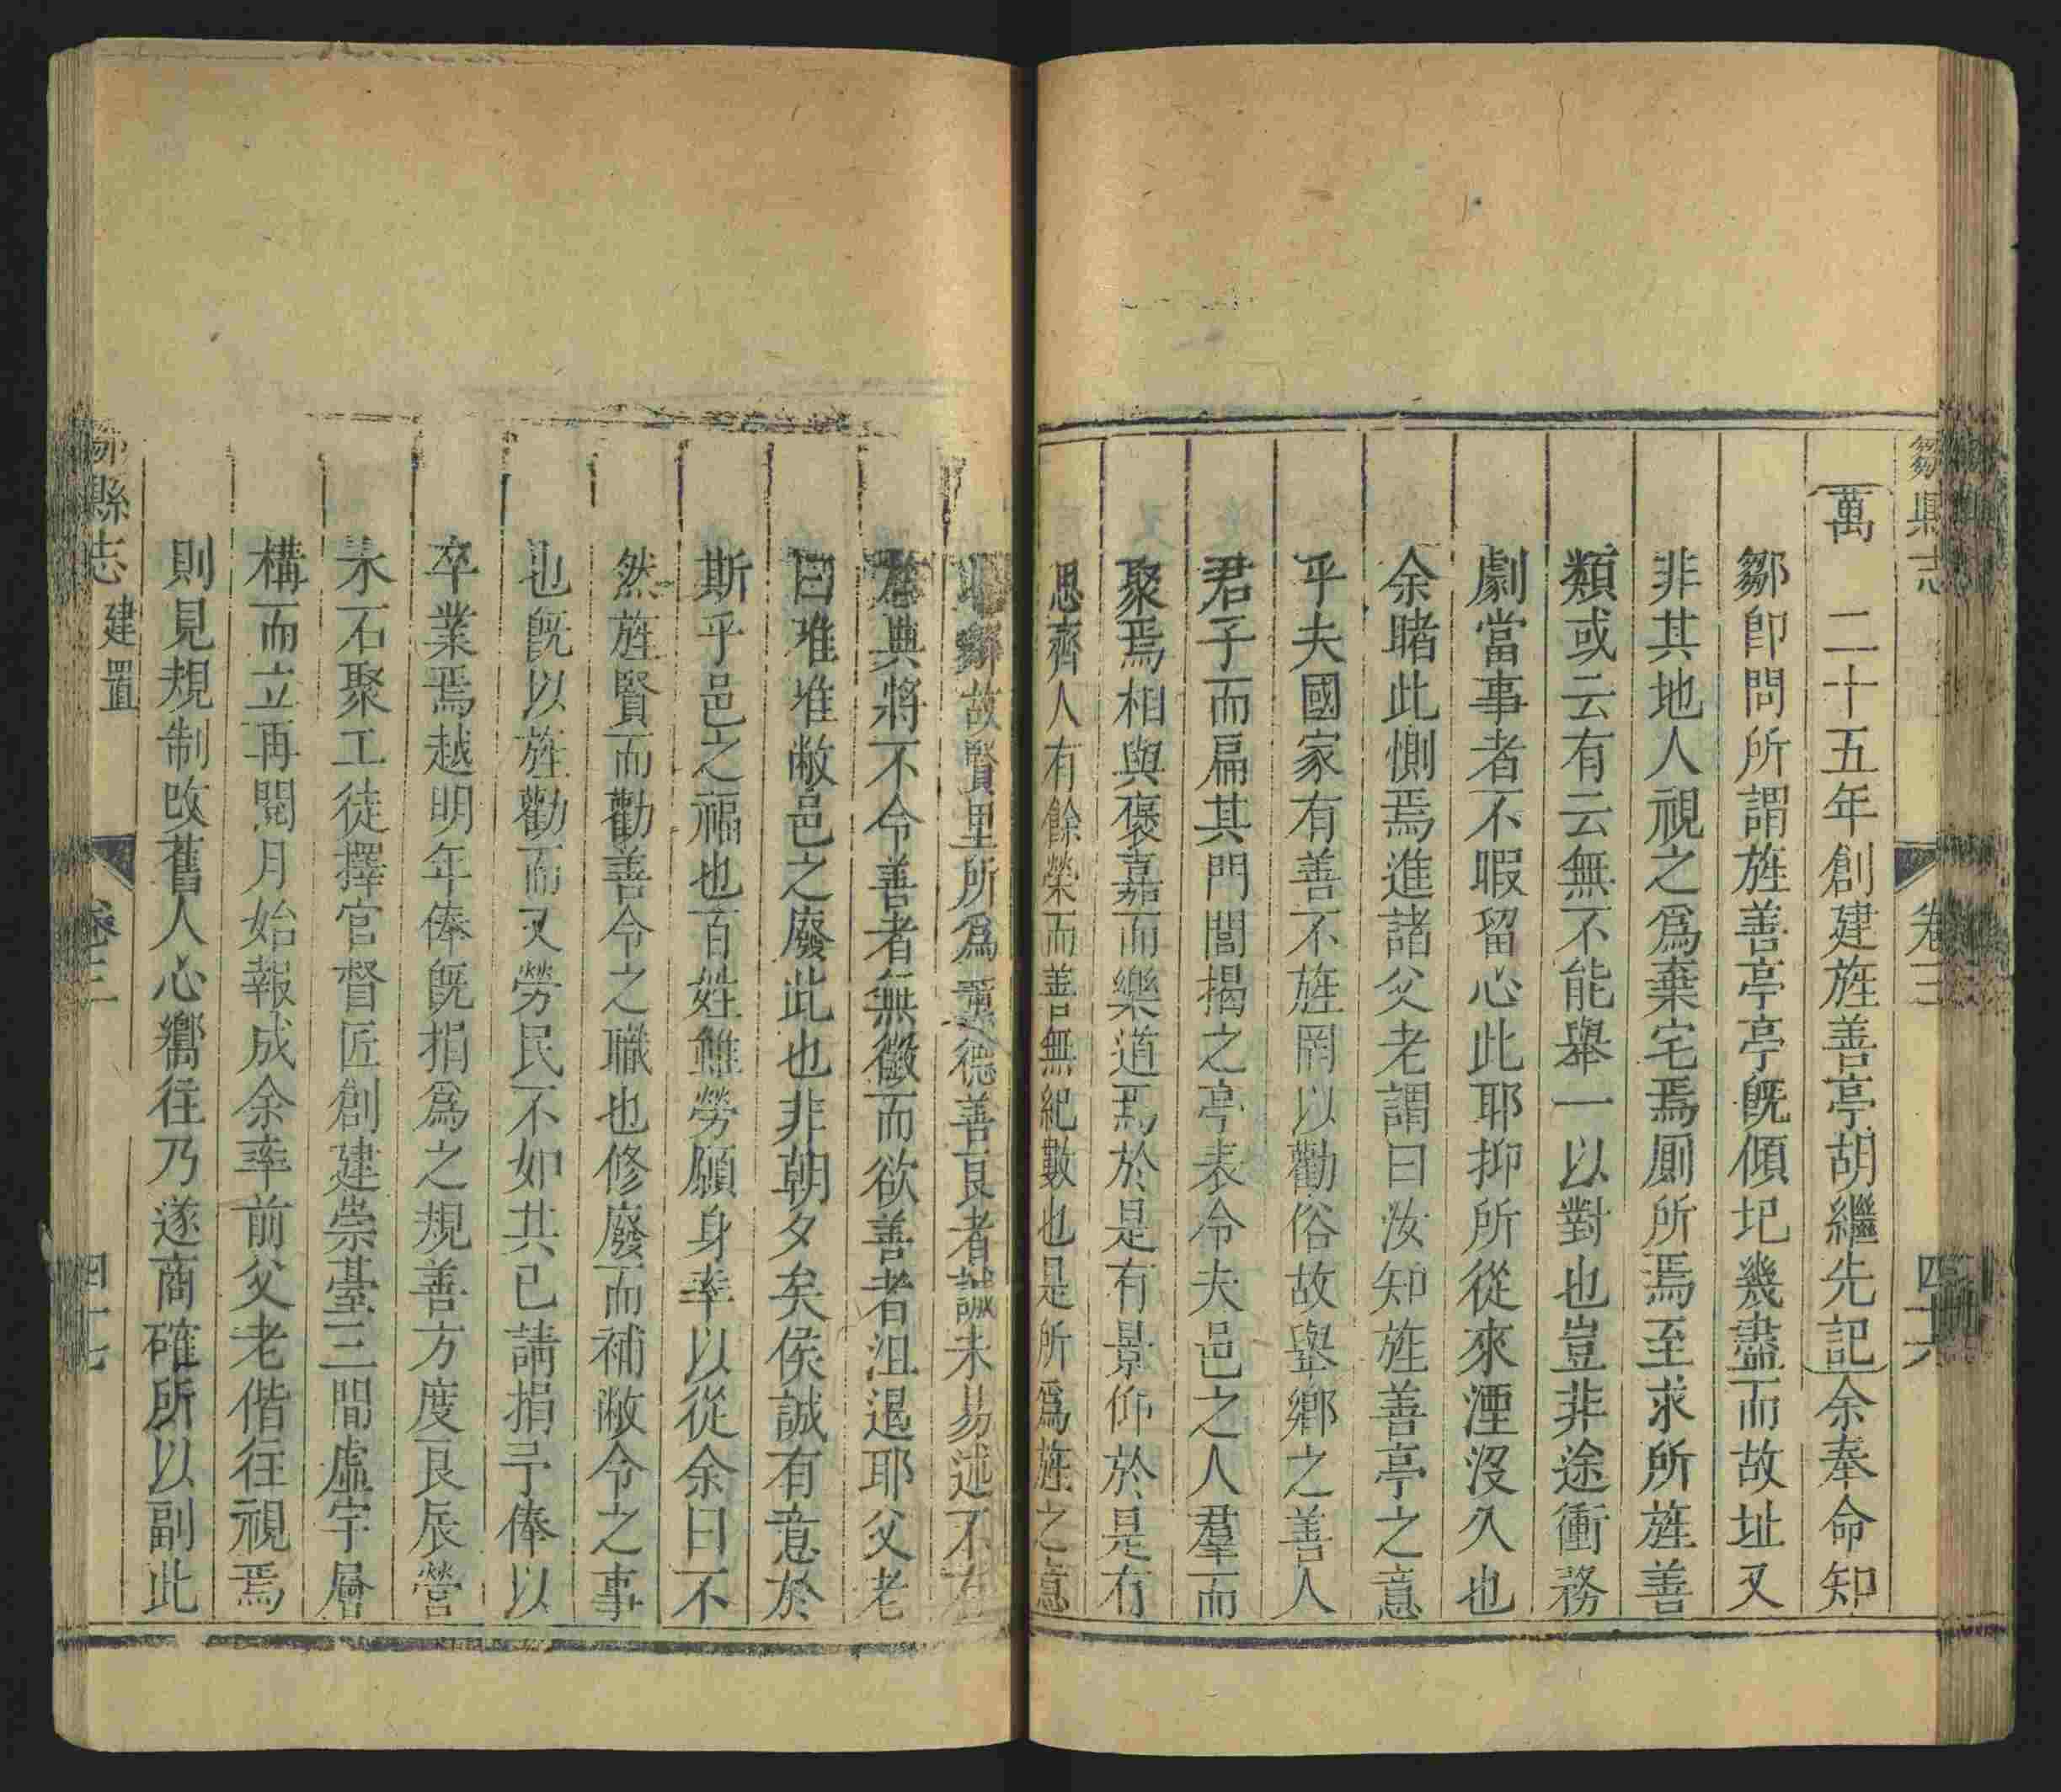 鄒縣志
卷三
四十六
萬 二十五年創建旌善亭胡繼先記余奉命知
鄒卽問所謂旌善亭亭旣傾圮幾盡而故址又
非其地人視之爲棄宅焉厠所焉至求所旌善
類或云有云無不能舉一以對也豈非途衝務
劇當事者不暇留心此耶抑所從來湮沒久也
余睹此惻焉進諸父老謂曰汝知旌善亭之意
乎夫國家有善不旌罔以勸俗故舉鄉之善人
君子而扁其門閭揭之亭表令夫邑之人羣而
聚焉相與褒嘉而樂道焉於是有景仰於是有
思齊人有餘榮而善無紀數也是所爲旌之意
故賢里所爲 德善良者誠未易述不
典將不令善者無徵而欲善者沮退耶父老
曰唯唯敝邑之廢此也非朝夕矣侯誠有意於
斯乎邑之福也百姓雖勞願身率以從余曰不
然旌賢而勸善令之職也修廢而補敝令之事
也旣以旌勸而又勞民不如共已請捐予俸以
卒業焉越明年俸旣捐爲之規善方度良辰營
木石聚工徒擇官督匠創建崇臺三間虛宇層
構而立再閱月始報成余率前父老偕往視焉
則見規制改舊人心嚮往乃遂商確所以副此
鄒縣志
建置
卷三
四十七